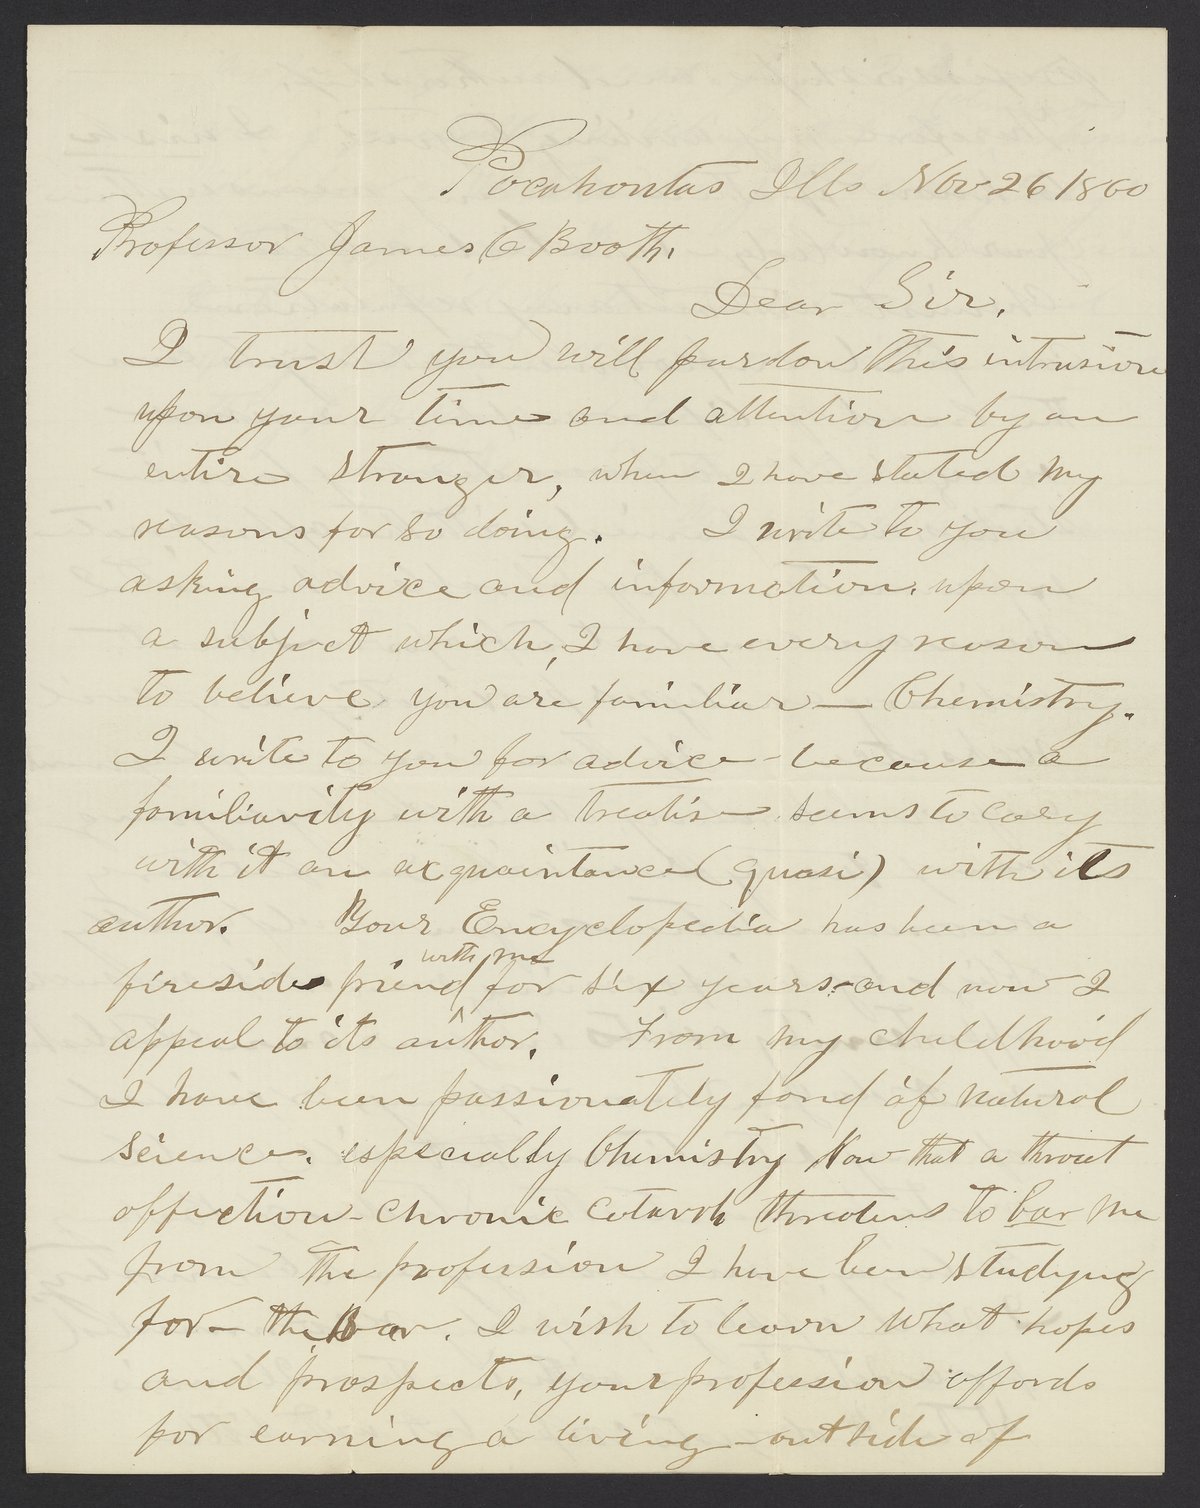 Pocahontas Ills Nov 26 1860
Professor James C Booth.
Dear Sir,
I trust you will pardon this intrusion
upon your time and attention by an
entire stranger, when I have stated my
reasons for so doing. I write to you
asking advice and information. upon
a subject which, I have every reason
to believe you are familiar — Chemistry.
I write to you for advice - because a
familiarity with a treatise seems to cary
with it an acquaintance (quasi) with its
author. Your Encyclopedia has been a
with me
fireside friend ^ for six years - and now I
appeal to its author. From my childhood
I have been passionately fond of natural
science. especially Chemistry Now that a throat
affection - chronic catarrh threatens to bar me
from the profession I have been studying
for - the Bar. I wish to learn what hopes
and prospects, your profession affords
for earning a living - outside of